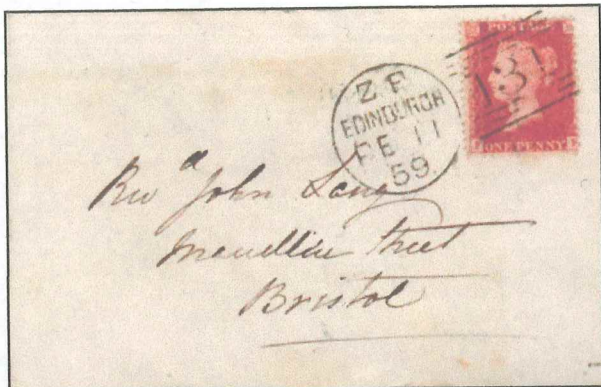 POSTAGE
131
ONE PENNY
Z F
EDINBURGH
FE 11
59
Revd John Lang
Street
Bristol